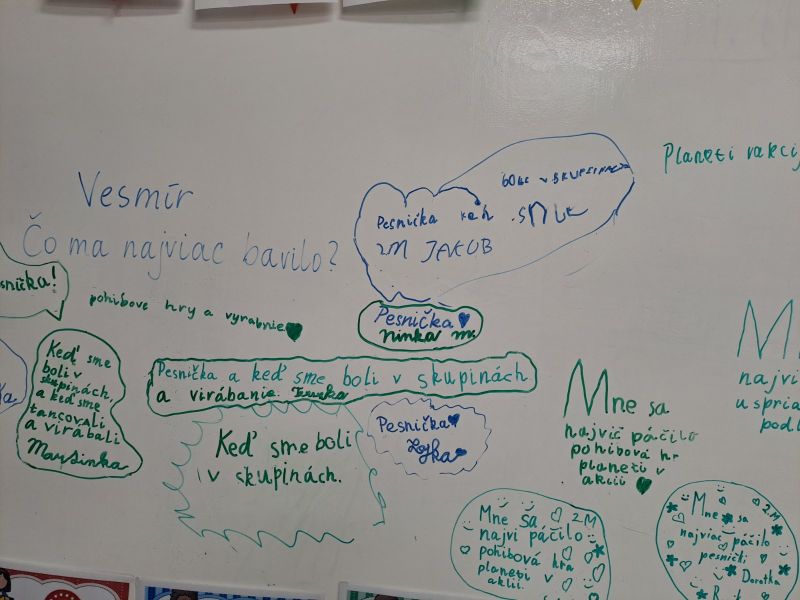 Vesmír
Čo ma najviac bavilo?
Planeti rakcij
boli v SKUPINAC
Pesnička keď sme
2M JAKUB
snička!
pohibove hry a vyrabnie
Pesnička
Ninka
Keď sme
boli v
skupinách,
a keď sme
tancovali
a virábali
Martinka
ka
Pesnička a keď sme boli v skupinách
a virábanie.
Keď sme boli
v skupinách.
Pesnička
Zojka
Mne sa
najvič páčilo
pohibová hr
planeti v
akcii
M
najvi
uspria
podl
Mne sa, 2.M
najvi páčilo
pohibová hra
planeti v
akcii.
Mne sa 2.M
najviac páčilo
pesničti
Dorotka